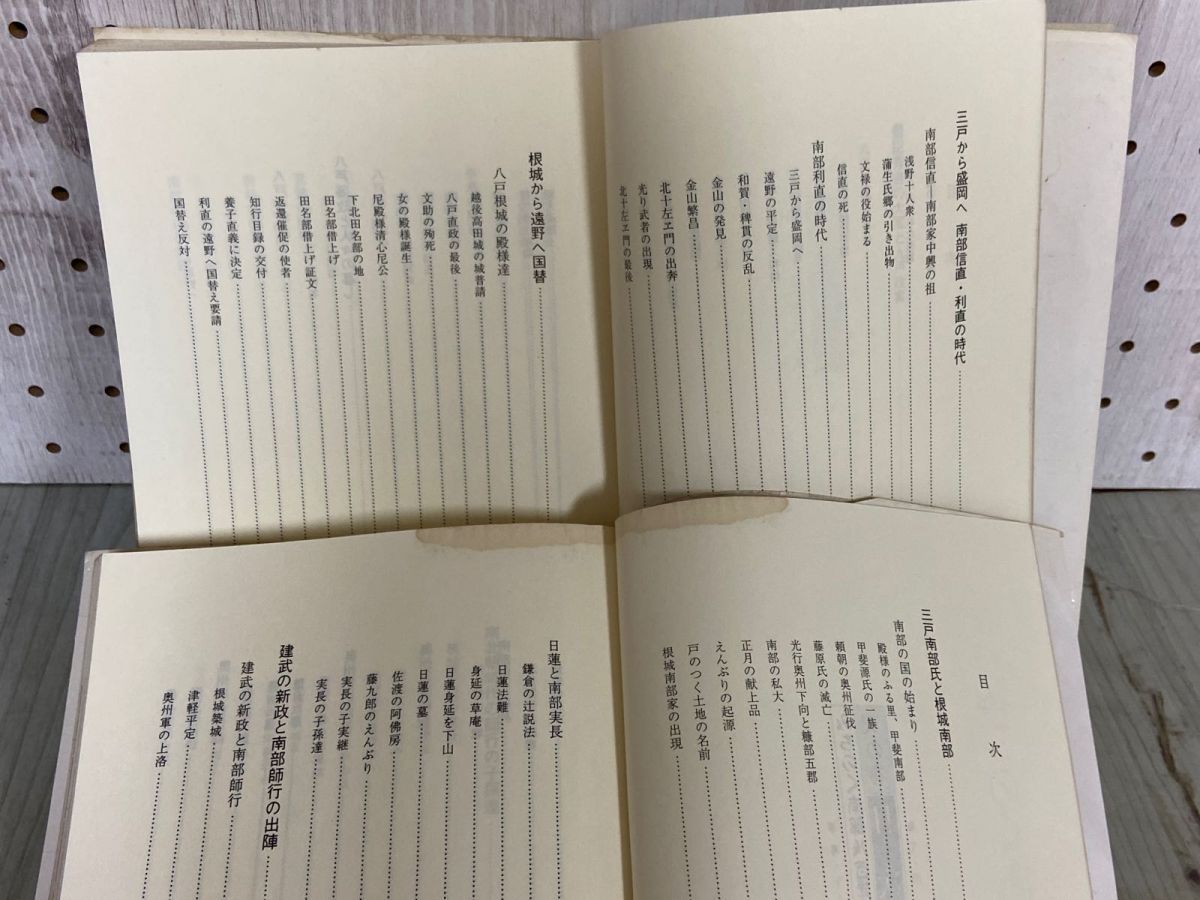 三戸から盛岡へ 南部信直・利直の時代
南部信直―南部家中興の祖
浅野十人衆
蒲生氏郷の引き出物
文禄の役始まる
信直の死
南部利直の時代
三戸から盛岡へ
遠野の平定
和賀・稗貫の反乱
金山の発見
金山繁昌
北十左エ門の出奔
光り武者の出現
北十左エ門の最後
根城から遠野へ国替
八戸根城の殿様達
越後高田城の城普請
八戸直政の最後
文助の殉死
女の殿様誕生
尼殿様清心尼公
下北田名部の地
田名部借上げ
田名部借上げ証文
返還催促の使者
知行目録の交付
養子直義に決定
利直の遠野へ国替え要請
国替え反対
目次
三戸南部氏と根城南部
南部の国の始まり
殿様のふる里、甲斐南部
甲斐源氏の一族
頼朝の奥州征伐
藤原氏の滅亡
光行奥州下向と糠部五郡
南部の私大
正月の献上品
えんぶりの起源
戸のつく土地の名前
根城南部家の出現
日蓮と南部実長
鎌倉の辻説法
日蓮法難
身延の草庵
日蓮身延を下山
日蓮の墓
佐渡の阿佛房
藤九郎のえんぶり
実長の子実継
実長の子孫達
建武の新政と南部師行の出陣
建武の新政と南部師行
根城築城
津軽平定
奥州軍の上洛